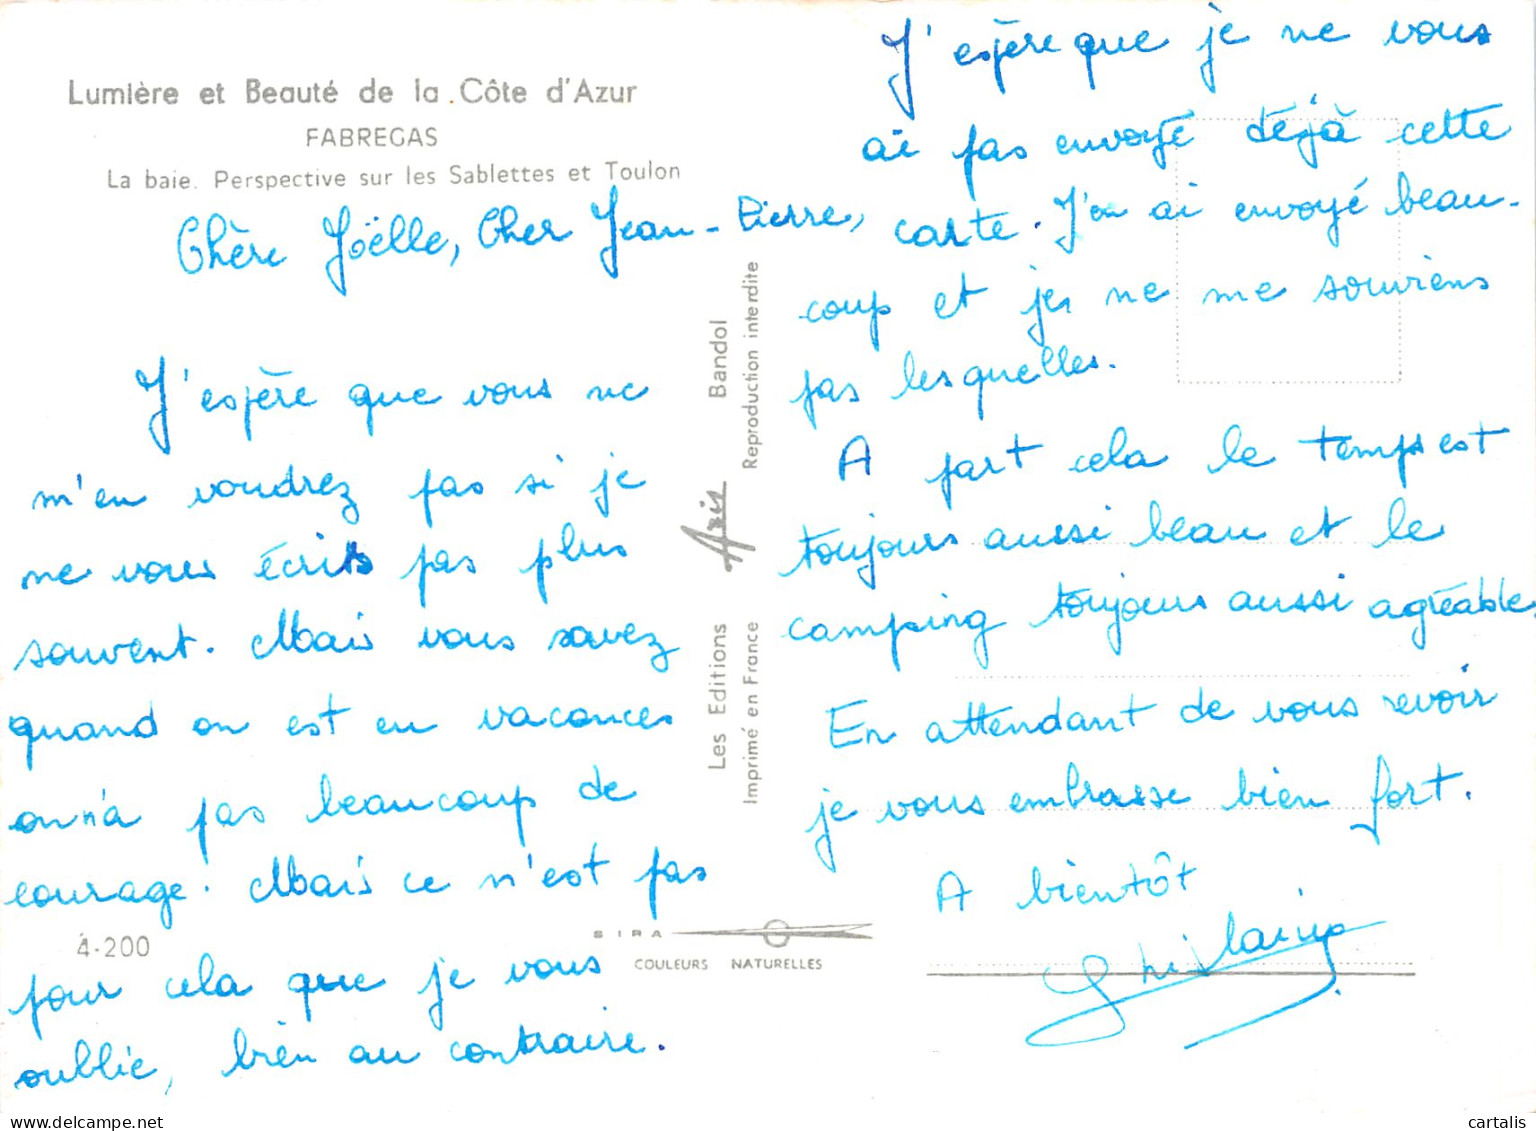 Lumière et Beauté de la Côte d'Azur
FABREGAS
La baie. Perspective sur les Sablettes et Toulon
Chère Joëlle, Cher Jean-Pierre,
J'espère que vous ne
m'en voudrez pas si je
ne vous écris pas plus
souvent. Mais vous savez
quand on est en vacances
on n'a pas beaucoup de
courage. Mais ce n'est pas
pour cela que je vous
oublie, bien au contraire.
4-200
Les Editions Axis Bandol
Imprimé en France Reproduction interdite
SIRA
COULEURS NATURELLES
J'espère que je ne vous
ai pas envoyé déjà cette
carte. J'en ai envoyé beau-
coup et je ne me souviens
pas lesquelles.
A part cela le temps est
toujours aussi beau et le
camping toujours aussi agréable
En attendant de vous revoir
je vous embrasse bien fort.
A bientôt
Ghislaine
cartalis.com